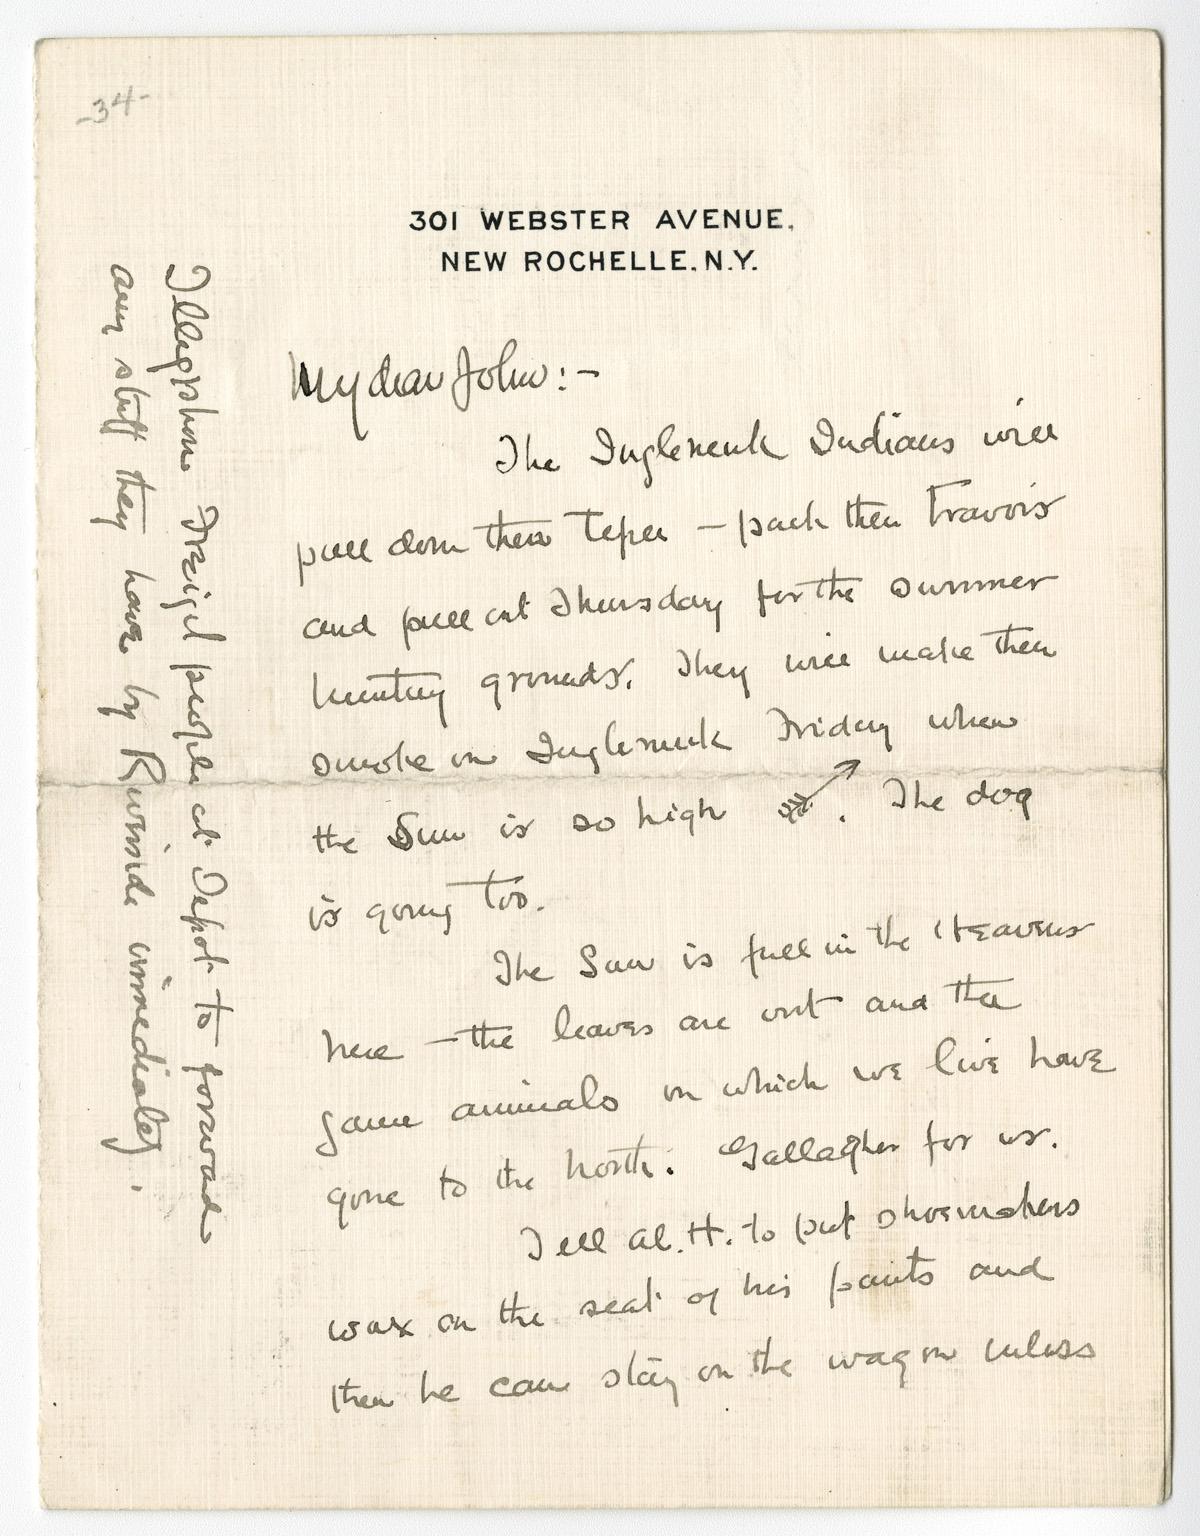 -34-
301 WEBSTER AVENUE,
NEW ROCHELLE, N.Y.
My dear John:-
The Ingleneuk Indians will
pull down their tepee - pack their travois
and pull out Thursday for the summer
hunting grounds. They will make their
smoke on Ingleneuk Friday when
the Sun is so high . The dog
is going too.
The Sun is full in the Heavens
here - the leaves are out and the
game animals on which we live have
gone to the north. Gallagher for us.
Tell Al. H. to put shoemakers
wax on the seat of his pants and
then he can stay on the wagon unless
Telephone Freight people at Depot to forward
any stuff they have by Riverside immediately.